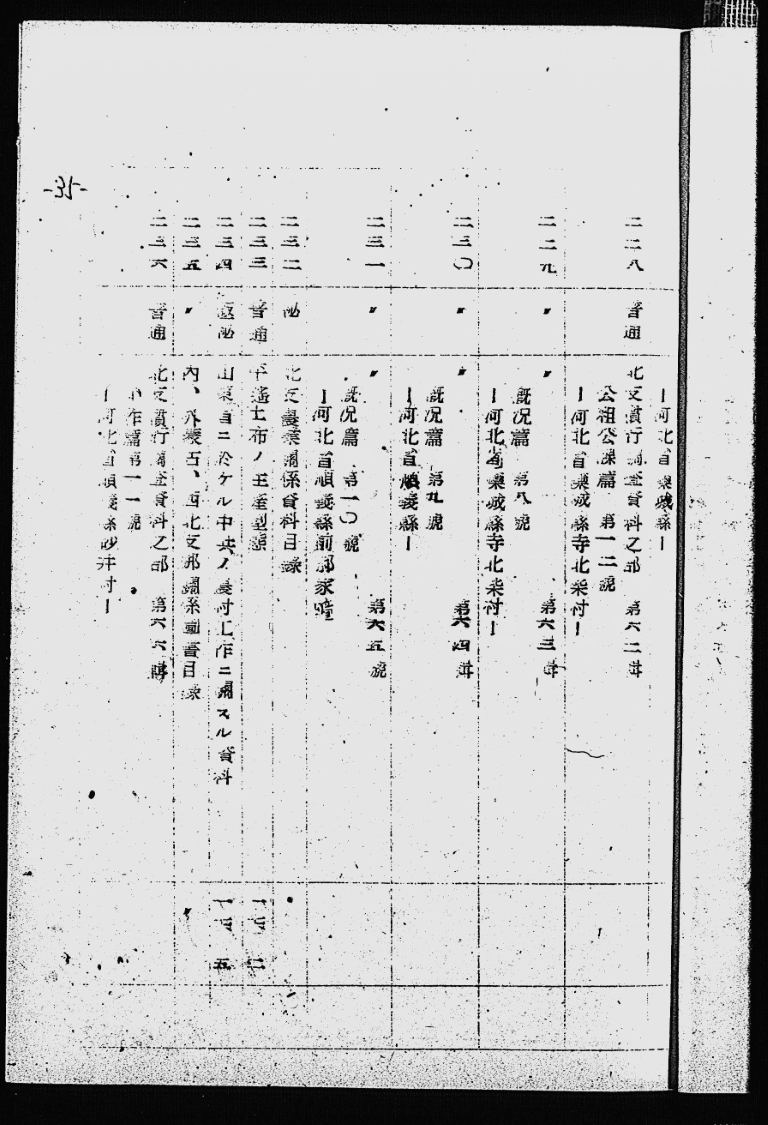 ー河北省欒城縣ー
二二八 普通 北支慣行調査資料之部 第六二輯
公租公課篇 第一二號
ー河北省欒城縣寺北柴村ー
二二九 〃 〃 第六三輯
概況篇 第八號
ー河北省欒城縣寺北柴村ー
二三〇 〃 〃 第六四輯
概況篇 第九號
ー河北省順義縣ー
二三一 〃 〃 第六五號
概況篇 第一〇號
ー河北省順義縣前郝家疃
二三二 秘 北支農業關係資料目錄
二三三 普通 平遙土布ノ生産型態
二三四 極秘 山東省ニ於ケル中共ノ農村工作ニ關スル資料 五
二三五 〃 內、外蒙古、西北支那關係圖書目錄 〃
二三六 普通 北支慣行調査資料之部 第六六輯
小作篇第一一號
ー河北省順義縣沙井村ー